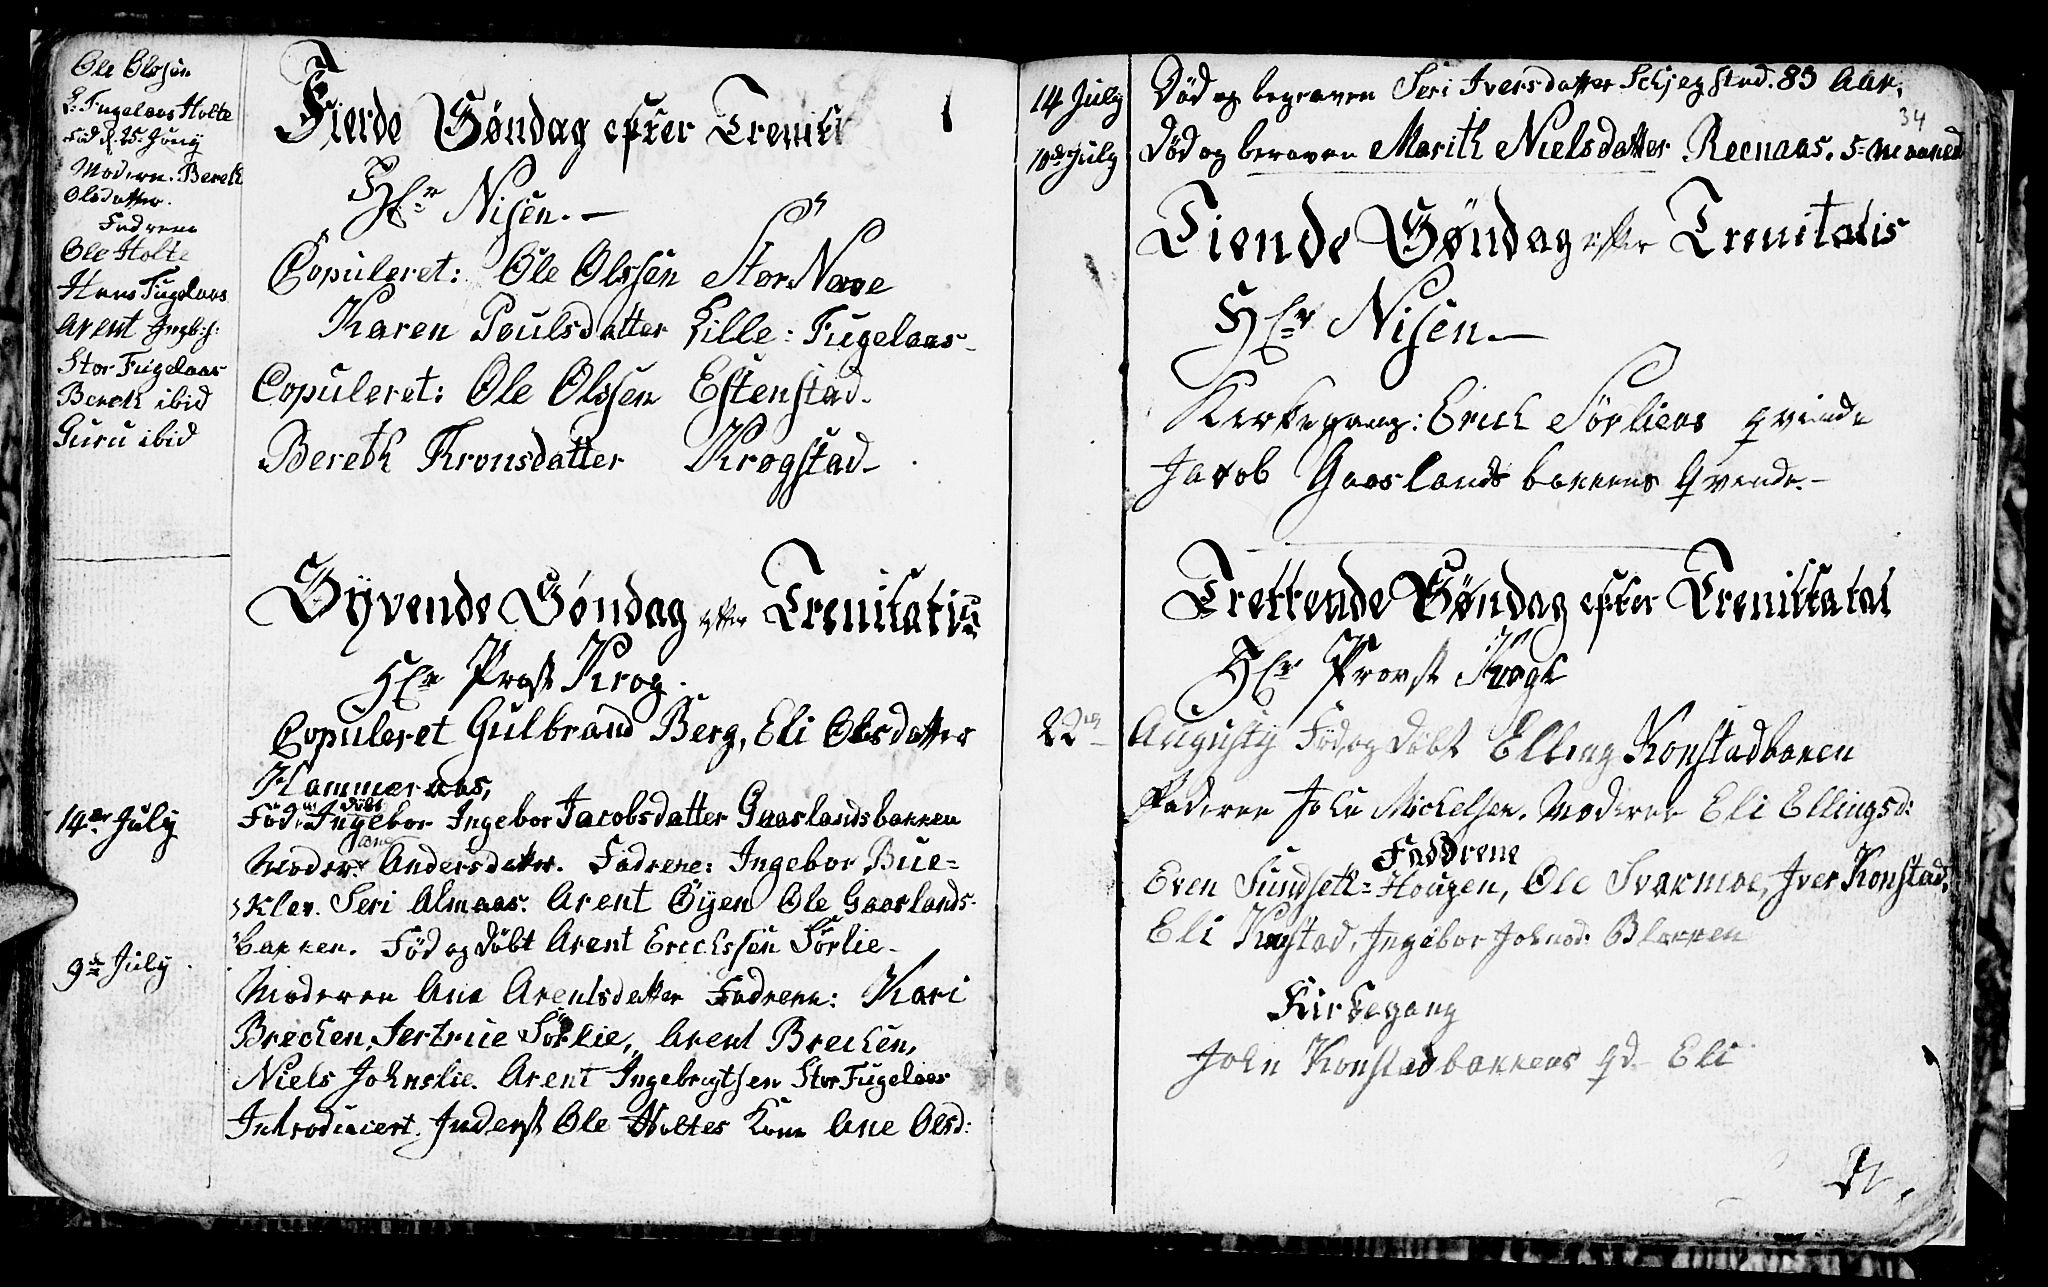 Ole Olsøn
L: Fugelaas Holte
Fød d. 25 Juny
Modern. Bereth
Olsdatter.
Fadrene
Ole Holte
Hans Fugelaas
Arent Ingb:s:
Stor Fugelaas
Bereth ibid
Guru ibid
Fierde Søndag efter Trenit
Hr Nisen.
Copuleret: Ole Olssen Stor Nave
Karen Poulsdatter Lille: Fugelaas
Copuleret: Ole Olssen Estenstad.
Bereth Tronsdatter Krogstad
Syvende Søndag efter Trenitatis
Hr Prost Krog.
Copuleret Gulbrand Berg, Eli Olsdatter
Hammeraas,
14de July
Fød og døbt Ingebor Jacobsdatter Gaaslandsbakken
Moder: Andersdatter. Fadrene: Ingebor Bue=
sklev. Seri Almaas. Arent Øyen Ole Gaaslands-
bakken. Fød og døbt Arent Erichssøn Sørlie-
9de July
Moderen Ane Arentsdatter Fadrene: Kari
Brechen, Jertrue Sørlie, Arent Brechen,
Niels Johnslie. Arent Ingebrigtsen Stor Fugelaas
Introducert. Inderst Ole Holtes Kone Ane Olsd:
14 July Død og begraven Seri Iversdatter Schjegstad. 83 Aar.
34
10de July Død og beraven Marith Nielsdatter Reenaas. 5= Maaned
Tiende Søndag efter Trenitatis
Hr Nisen.
Kirkegang: Erich Sørliens qvinde
Jacob Gaaslandsbakkens Qvende.
Trettende Søndag efter Trenittatat
Hr Provst Krogh
22de Augusty Fød og døbt Elling Konstadbaken
Faderen John Michelsen. Moderen Eli Ellingsd:
Faddrene
Even Sundseth=Hougen, Ole Svarmoe, Iver Konstad,
Eli Konstad, Ingebor Johnsd: Blakken
Kirkegang
John Konstadbakkens qd. Eli